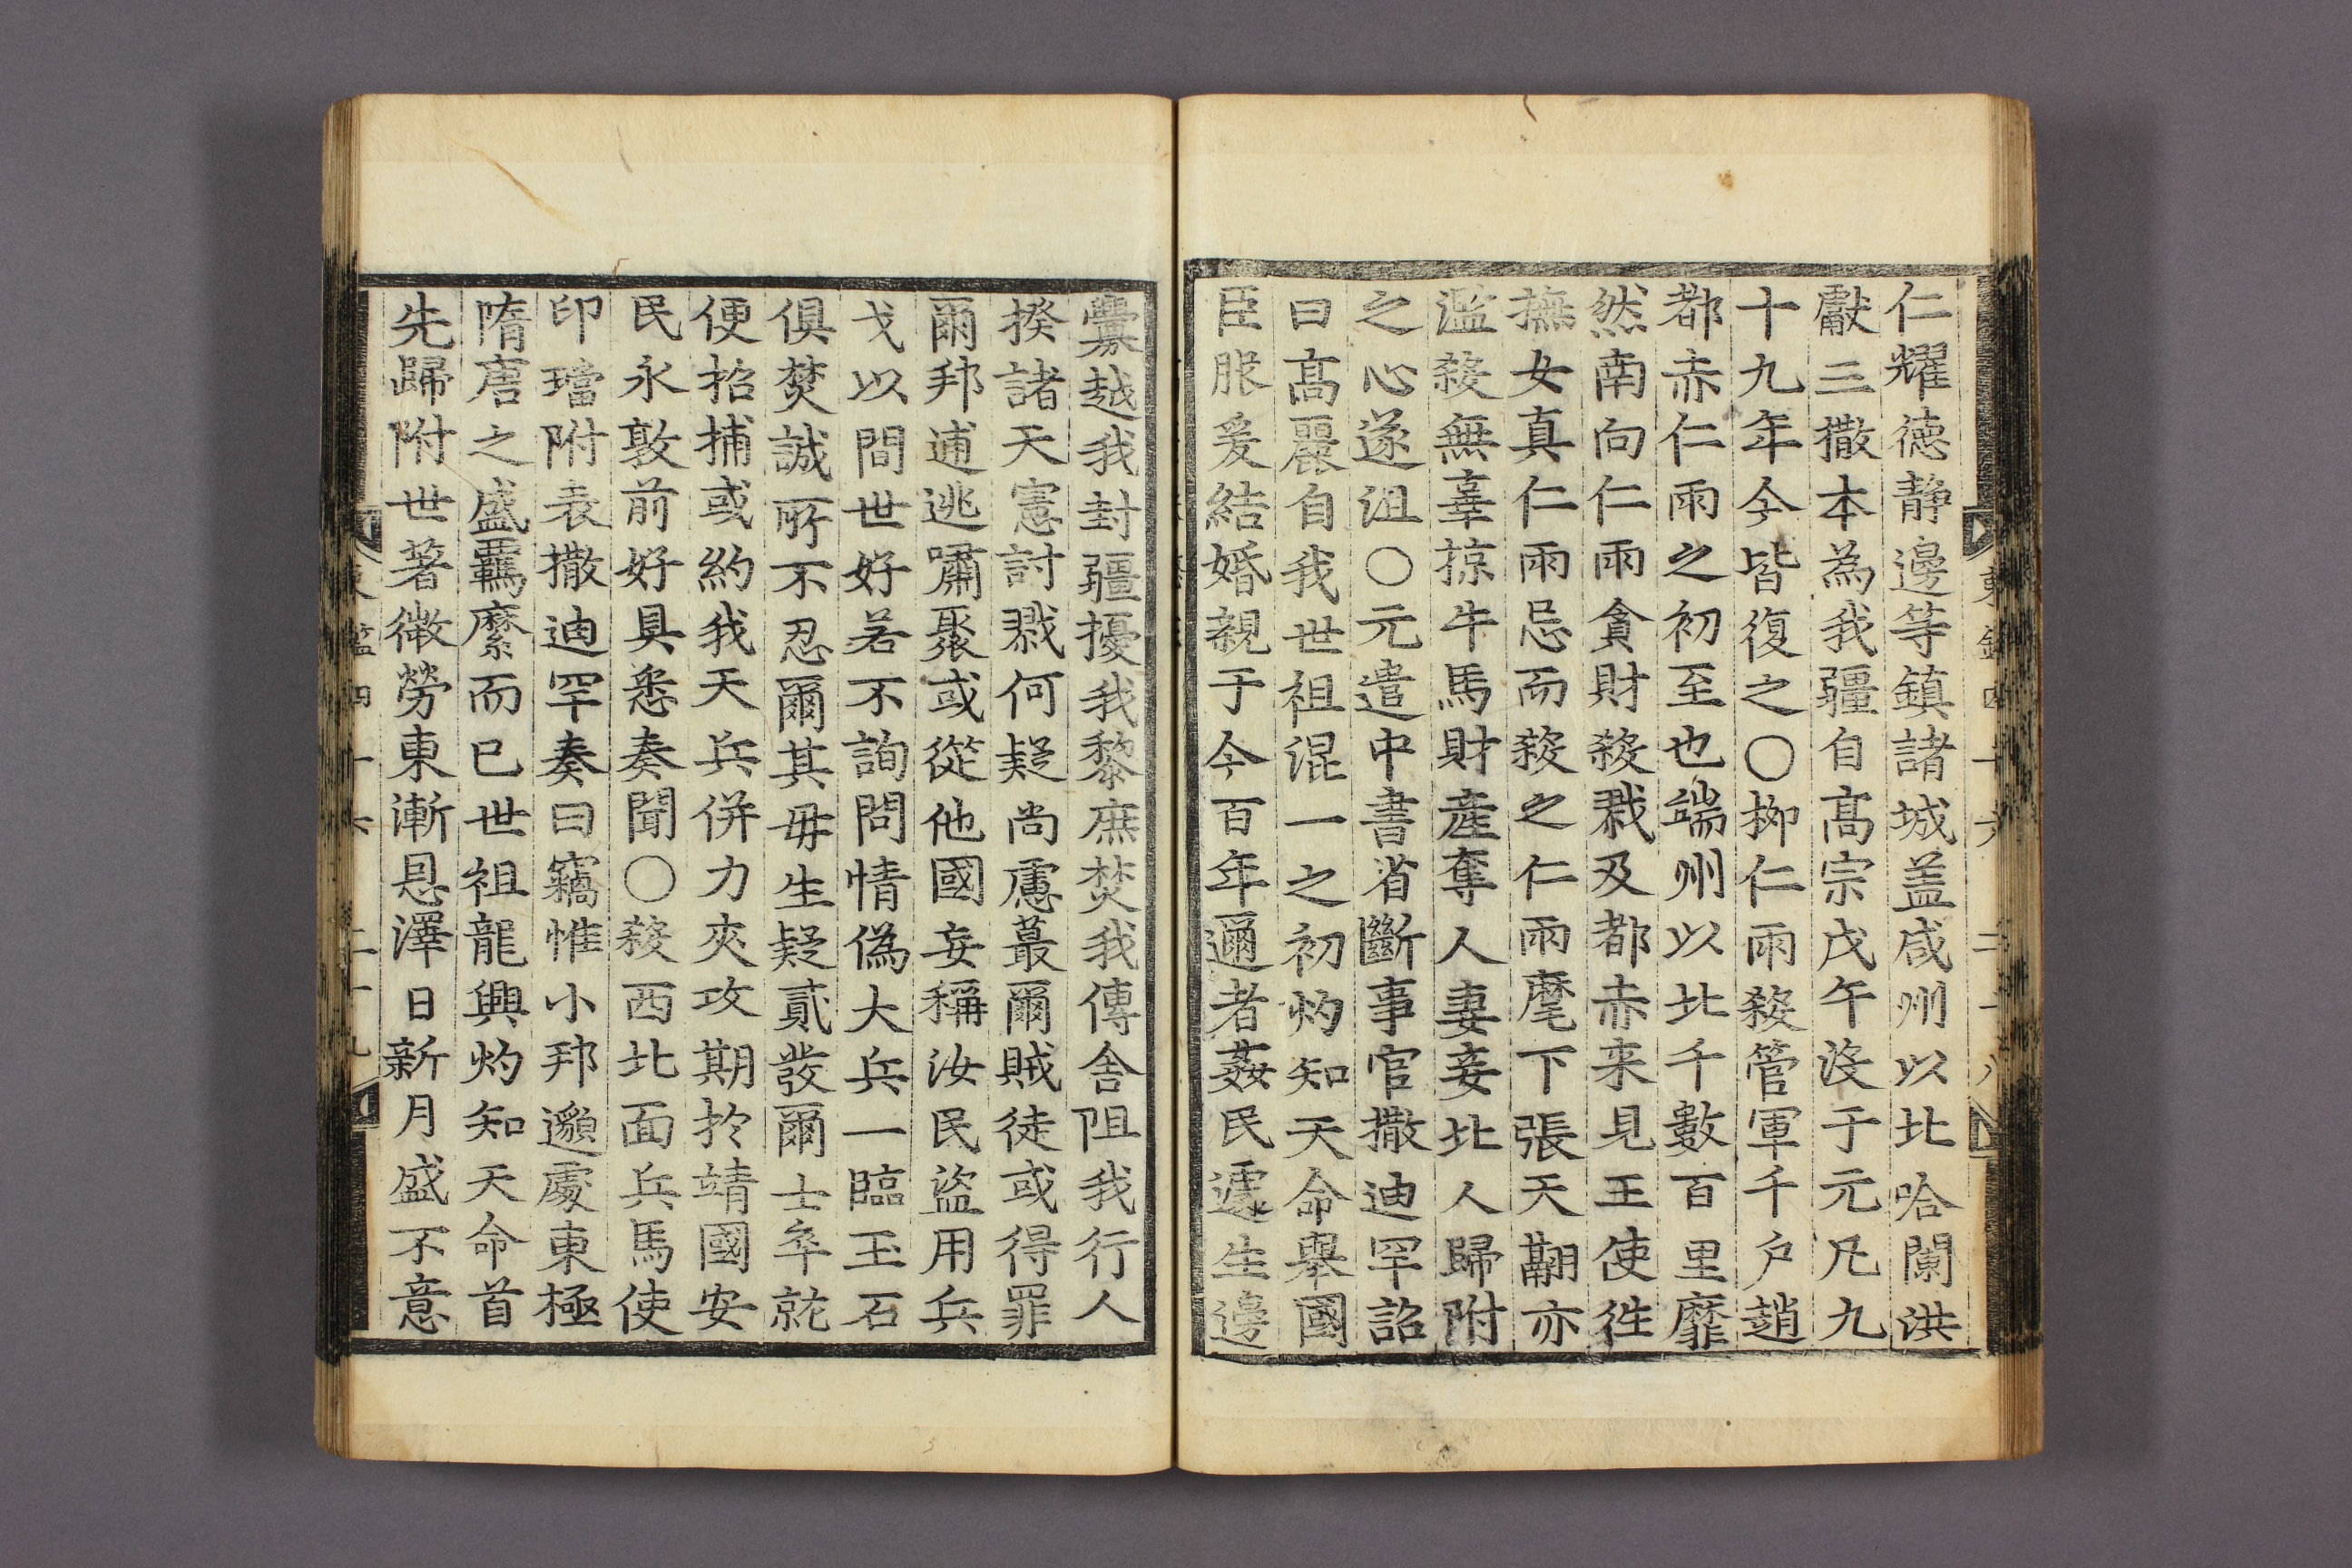 東鑑四十六 二十八
仁耀德静邊等鎮諸城盖咸州以北哈闌洪
獻三撒本為我疆自髙宗戊午沒于元凡九
十九年今皆復之○柳仁雨殺管軍千戶趙
都赤仁雨之初至也端州以北千數百里靡
然南向仁雨貪財殺戮及都赤来見王使徃
撫女真仁雨忌而殺之仁雨麾下張天翮亦
濫殺無辜掠牛馬財産奪人妻妾北人歸附
之心遂沮○元遣中書省斷事官撒迪罕詔
曰髙麗自我世祖混一之初灼知天命舉國
臣服爰結婚親于今百年邇者姦民遽生邊
釁越我封疆擾我黎庶焚我傳舎阻我行人
揆諸天憲討戮何疑尚慮蕞爾賊徒或得罪
爾邦逋逃嘯聚或從他國妄稱汝民盜用兵
戈以間世好若不詢問情偽大兵一臨玉石
俱焚誠所不忍爾其毋生疑貳發爾士卒就
便招捕或約我天兵併力夾攻期於靖國安
民永敦前好具悉奏聞○殺西北面兵馬使
印璫附表撒迪罕奏曰竊惟小邦邈處東極
隋唐之盛羈縻而已世祖龍興灼知天命首
先歸附世著微勞東漸恩澤日新月盛不意
東鑑四十六 二十九